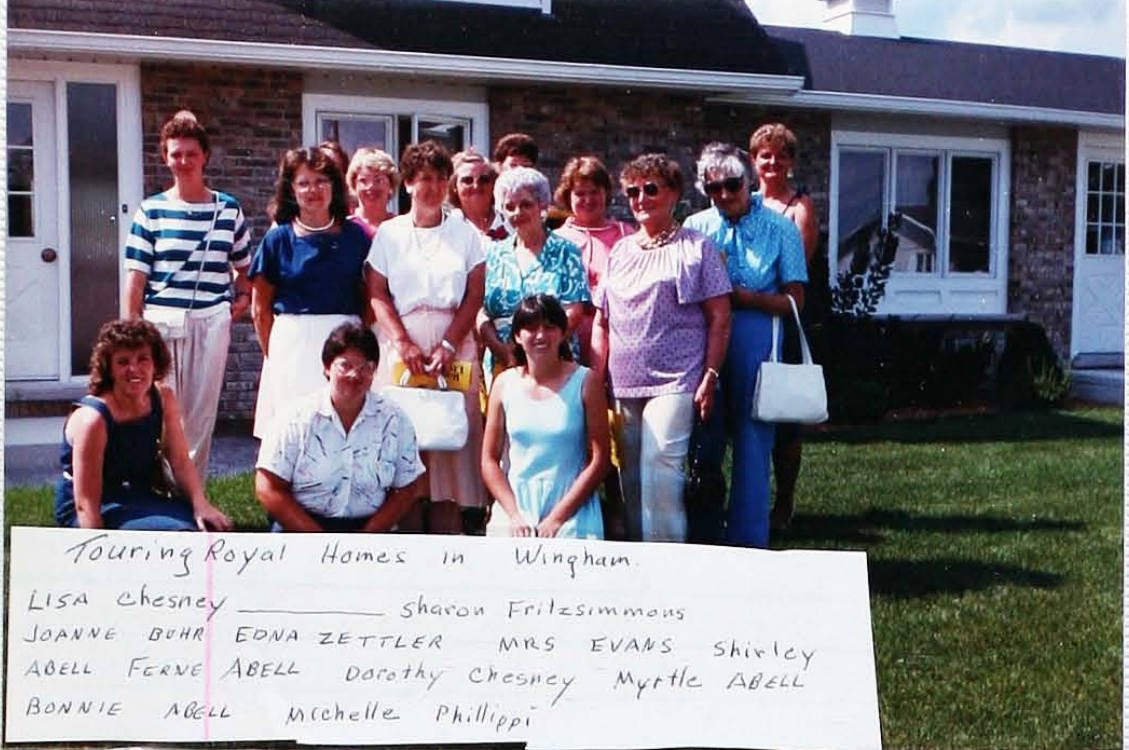 Touring Royal Homes in Wingham.
LISA Chesney ________ Sharon Fritzsimmons
JOANNE BUHR EDNA ZETTLER MRS EVANS Shirley
ABELL FERNE ABELL Dorothy Chesney Myrtle ABELL
BONNIE ABELL Michelle Phillippi